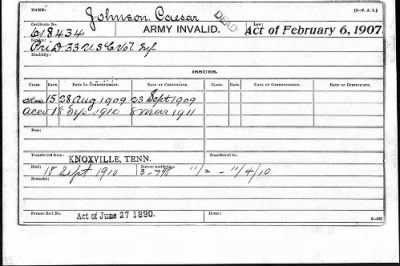 NAME: Johnson Caesar DEAD
Certificate No. 618434 ARMY INVALID. Law: Act of February 6, 1907
Service: Pri D 33 U.S.C. Vol. Inf.
Disability:
ISSUES.
CLASS. RATE. DATE OF COMMENCEMENT. DATE OF CERTIFICATE. CLASS. RATE. DATE OF COMMENCEMENT. DATE OF CERTIFICATE.
15 28 Aug 1909 23 Sept 1909
18 Sep 1910 8 Mar 1911
Fee:
Transferred from: KNOXVILLE, TENN. Transferred to:
18 Sept 1910 11/4/10
Remarks:
Former Roll No. Act of June 27 1890. Home: